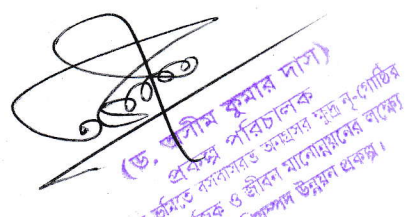 (ড. অসীম কুমার দাস)
প্রকল্প পরিচালক
ভূমিতে বসবাসরত অনগ্রসর ক্ষুদ্র নৃ-গোষ্ঠির
ও জীবন মানোন্নয়নের লক্ষ্যে
উন্নয়ন প্রকল্প।